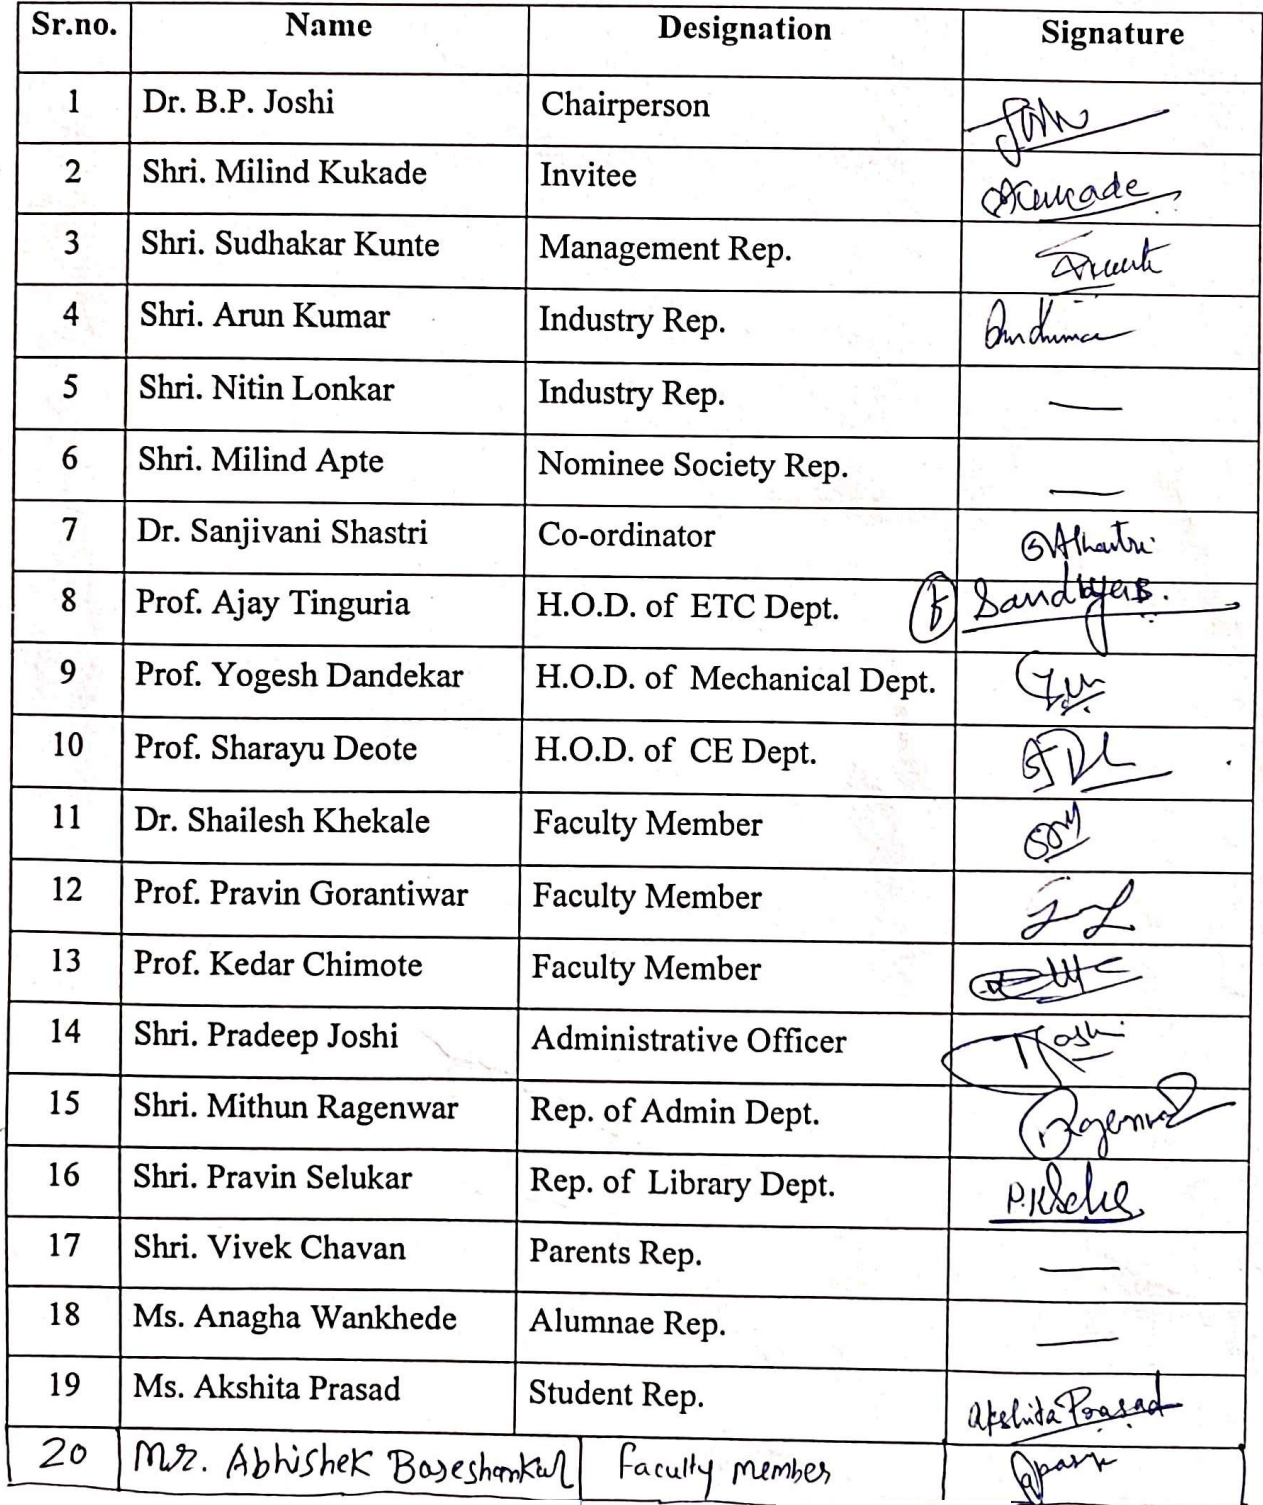 Sr.no. Name Designation Signature
1 Dr. B.P. Joshi Chairperson
2 Shri. Milind Kukade Invitee Kukade
3 Shri. Sudhakar Kunte Management Rep.
4 Shri. Arun Kumar Industry Rep.
5 Shri. Nitin Lonkar Industry Rep. —
6 Shri. Milind Apte Nominee Society Rep. —
7 Dr. Sanjivani Shastri Co-ordinator
8 Prof. Ajay Tinguria H.O.D. of ETC Dept.
9 Prof. Yogesh Dandekar H.O.D. of Mechanical Dept.
10 Prof. Sharayu Deote H.O.D. of CE Dept.
11 Dr. Shailesh Khekale Faculty Member
12 Prof. Pravin Gorantiwar Faculty Member
13 Prof. Kedar Chimote Faculty Member
14 Shri. Pradeep Joshi Administrative Officer Joshi
15 Shri. Mithun Ragenwar Rep. of Admin Dept.
16 Shri. Pravin Selukar Rep. of Library Dept.
17 Shri. Vivek Chavan Parents Rep. —
18 Ms. Anagha Wankhede Alumnae Rep. —
19 Ms. Akshita Prasad Student Rep. Akshita Prasad
20 Mr. Abhishek Faculty member